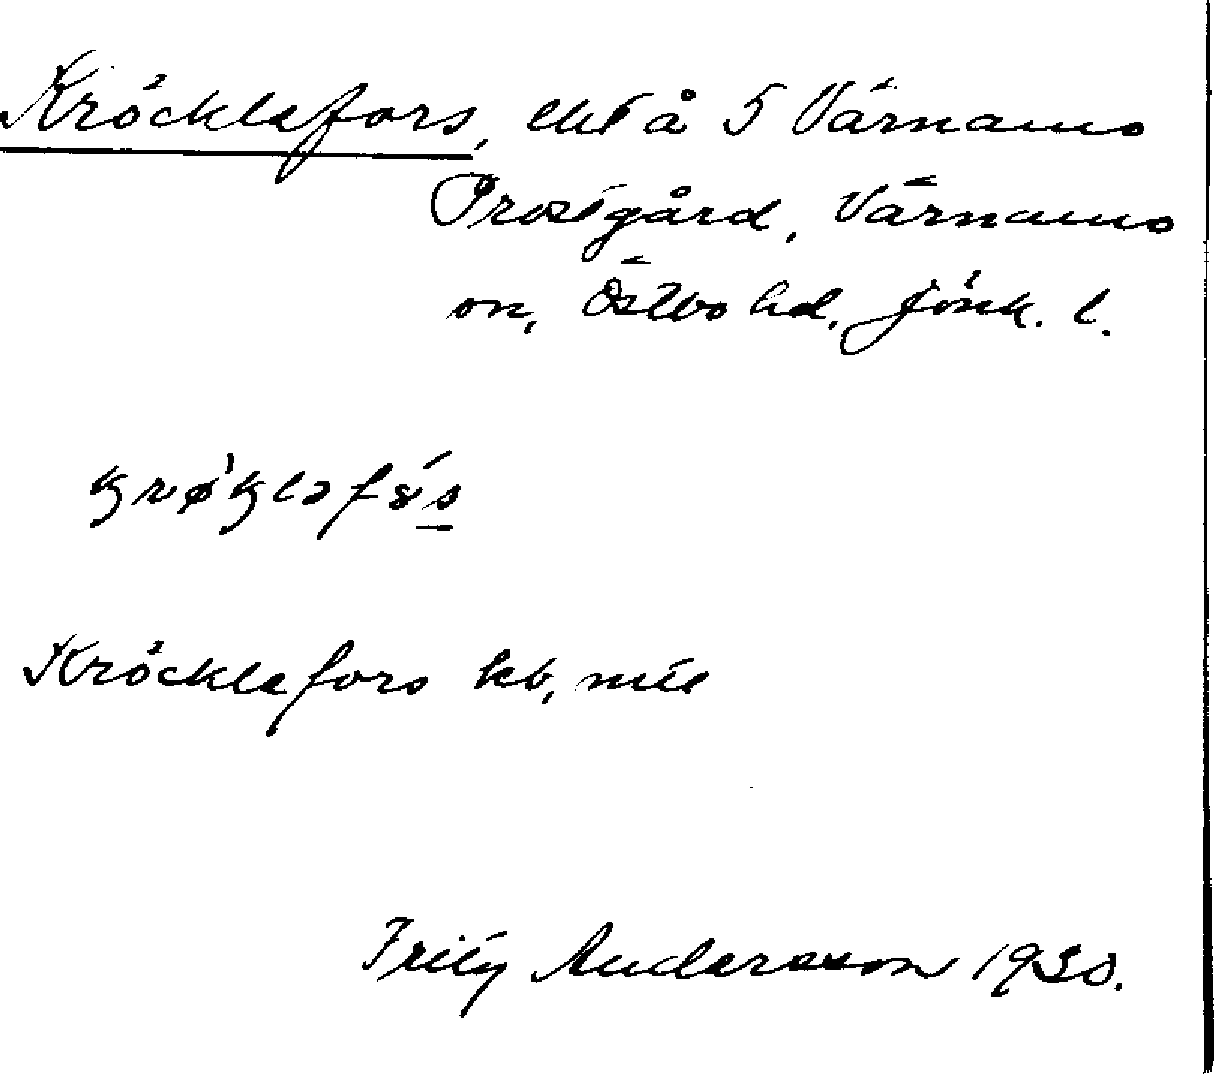 Kröcklafors, ekt å 5 Värnamo
Prostgård, Värnamo
sn, Östbo hd, Jönk. l.
Kröcklafors kb,
Fritz Andersson 1930.